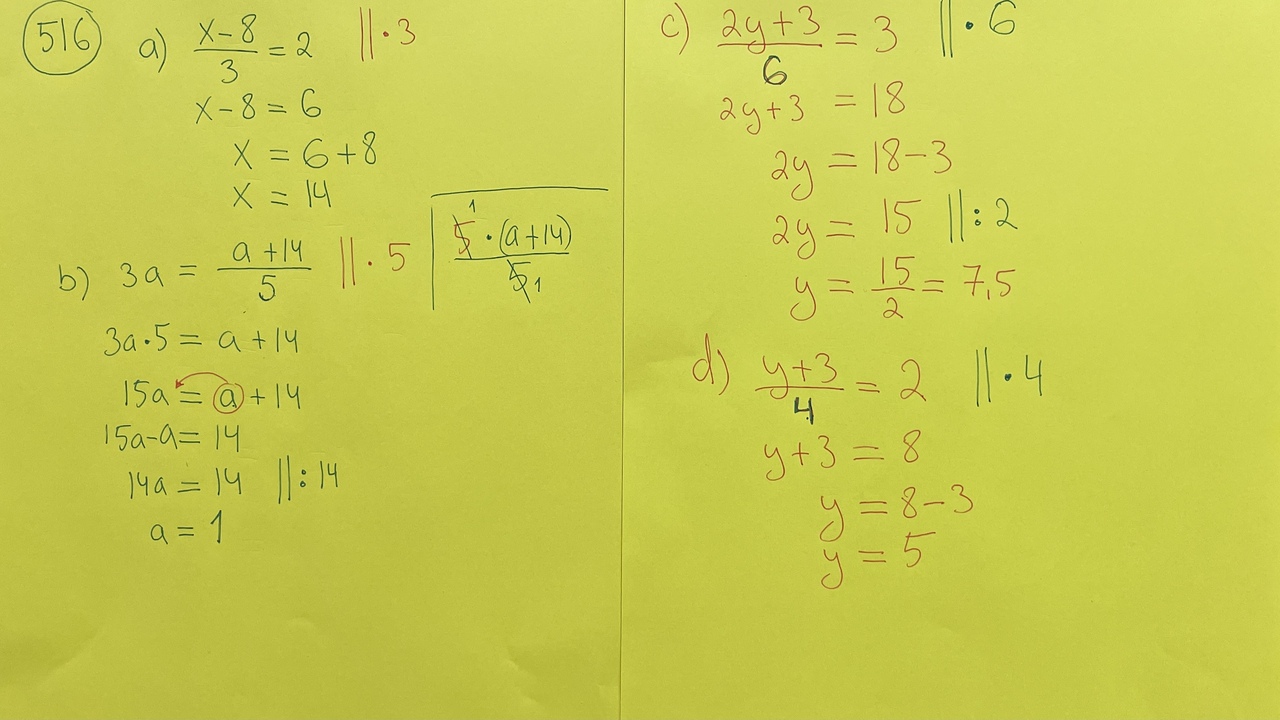 516
a) (x-8)/3 = 2 ||·3
x-8 = 6
x = 6+8
x = 14
b) 3a = (a+14)/5 ||·5
5·(a+14)/5
1
1
3a·5 = a+14
15a = a+14
15a-a = 14
14a = 14 ||:14
a = 1
c) (2y+3)/6 = 3 ||·6
2y+3 = 18
2y = 18-3
2y = 15 ||:2
y = 15/2 = 7,5
d) (y+3)/4 = 2 ||·4
y+3 = 8
y = 8-3
y = 5